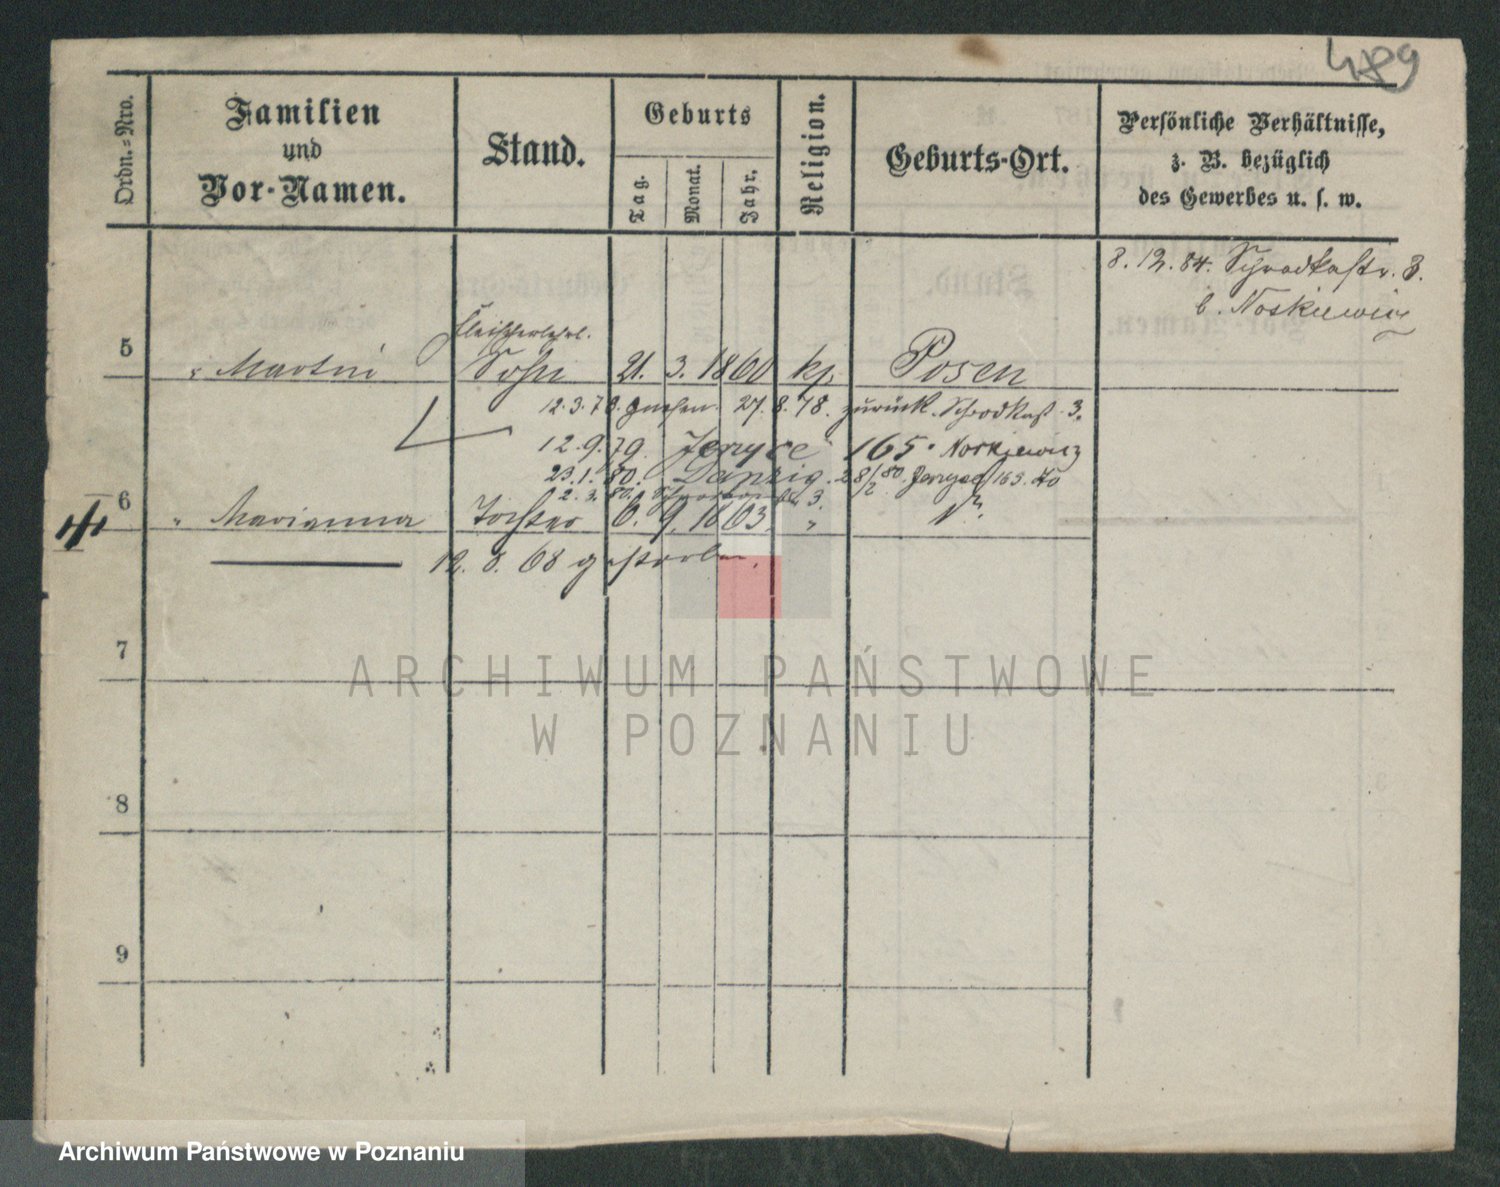 489
Ordn.=Nro.
Familien
und
Vor-Namen.
Stand.
Geburts
Tag.
Monat.
Jahr.
Religion.
Geburts-Ort.
Persönliche Verhältnisse,
z. B. bezüglich
des Gewerbes u. s. w.
8. 12. 84. Schrodkastr. 3.
b. Noskiewicz
Fleischerlehrl.
5 " Martin Sohn 21. 3. 1860 kp. Posen
12. 3. 78. Gnesen 27. 8. 78. zurück. Schrodkast. 3.
12. 9. 79. Jerzyce 165. Noskiewicz
23. 1. 80. Danzig. 28/2 80. Jerzyce 165.
2. 3. 80. 3.
6 " Marianna Tochter 6. 9. 1863 "
12. 8. 68 gestorben.
7
8
9
ARCHIWUM PAŃSTWOWE
W POZNANIU
Archiwum Państwowe w Poznaniu